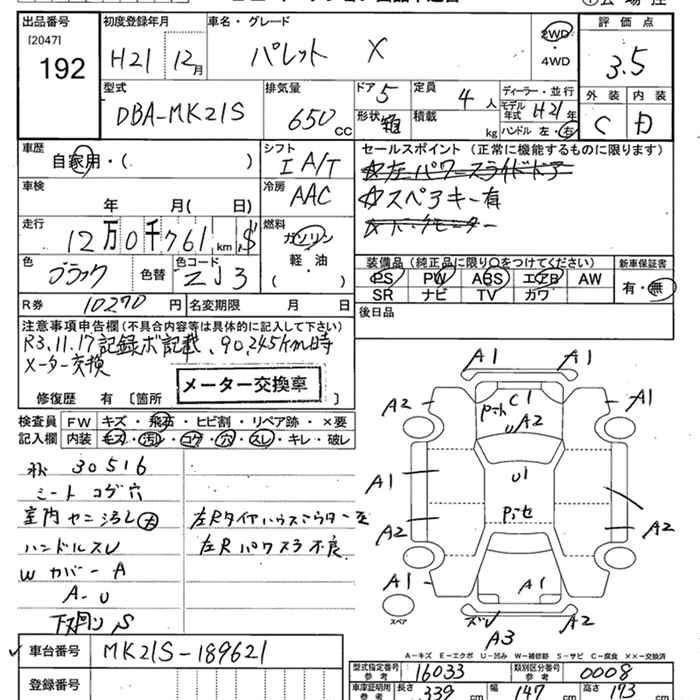 出品番号 初度登録年月 車名・グレード 評価点
[2047]
192 H21 12月 パレット X 2WD・4WD 3.5
型式 排気量 ドア 5 定員 4人 ディーラー・並行 外装 内装
DBA-MK21S 650cc 形状 箱 積載 kg モデル年式 H21年 C D
ハンドル 左・右
車歴 自家用・( ) シフト IA/T セールスポイント (正常に機能するものに限ります)
☆左パワースライドドア
車検 年 月( 日) 冷房 AAC ☆スペアキー有
走行 12万0千761km 燃料 ガソリン 軽・油 ( )
色 ブラック 色替 色コード ZJ3 装備品 (純正品に限り○をつけてください) 新車保証書
PS PW ABS エアB AW 有・無
SR ナビ TV カワ
R券 10270円 名変期限 月 日 後日品
注意事項申告欄 (不具合内容等は具体的に記入して下さい)
R3.11.17記録ボ記載、90,245km時
メーター交換
メーター交換車
修復歴 有 [箇所 ]
検査員記入欄 FW キズ・飛石・ヒビ割・リペア跡・×要
内装 キズ・汚れ・コゲ・穴・スレ・キレ・破し
30516
シート コゲ穴
室内ヤニ汚れ大
ハンドルスレ 左Rパワスラ不良
Wカバー A
A-U
下廻り S
A1 A1
A2 A1
C1
A2
A1 U1
A2 A2
A1 A1
スペア A3 A2
A-キズ E-エクボ U-凹み W-補修跡 S-サビ C-腐食 ××-交換済
車台番号 MK21S-189621
登録番号
型式指定番号 参考 16033 類別区分番号 参考 0008
車庫証明用 参考 長さ 339cm 幅 147cm 高さ 173cm